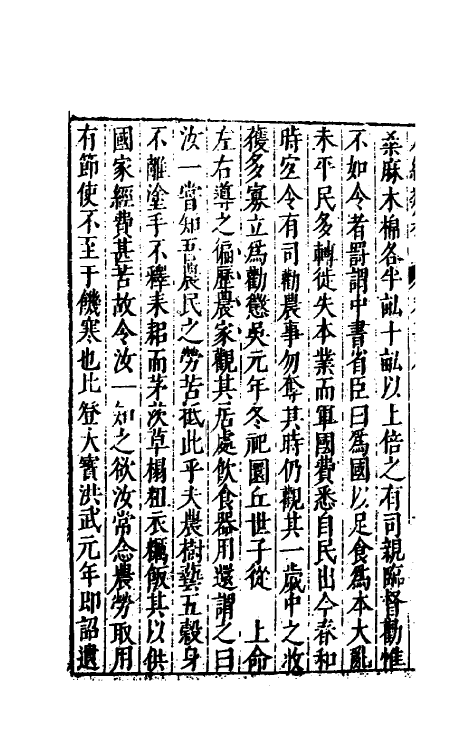 桑麻木棉各半畝十畝以上倍之有司親臨督勸惟
不如令者罰謂中書省臣曰爲國以足食爲本大亂
未平民多轉徙失本業而軍國費悉自民出今春和
時宜令有司勸農事勿奪其時仍觀其一歲中之收
穫多寡立爲勸懲吳元年冬祀圜丘世子從 上命
左右導之徧歷農家觀其居處飲食器用還謂之曰
汝一嘗知吾農民之勞苦祗此乎夫農樹藝五穀身
不離塗手不釋耒耜而茅茨草榻粗衣糲飯其以供
國家經費甚苦故令汝一知之欲汝常念農勞取用
有節使不至于饑寒也比登大寶洪武元年即詔遺